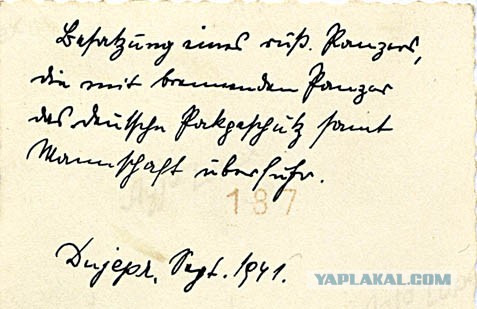 Besatzung eines ruß. Panzers,
die mit brennendem Panzer
das deutsche Pakgeschütz samt
Mannschaft überfuhr.
187
Dnjepr, Sept. 1941.
YAPLAKAL.COM